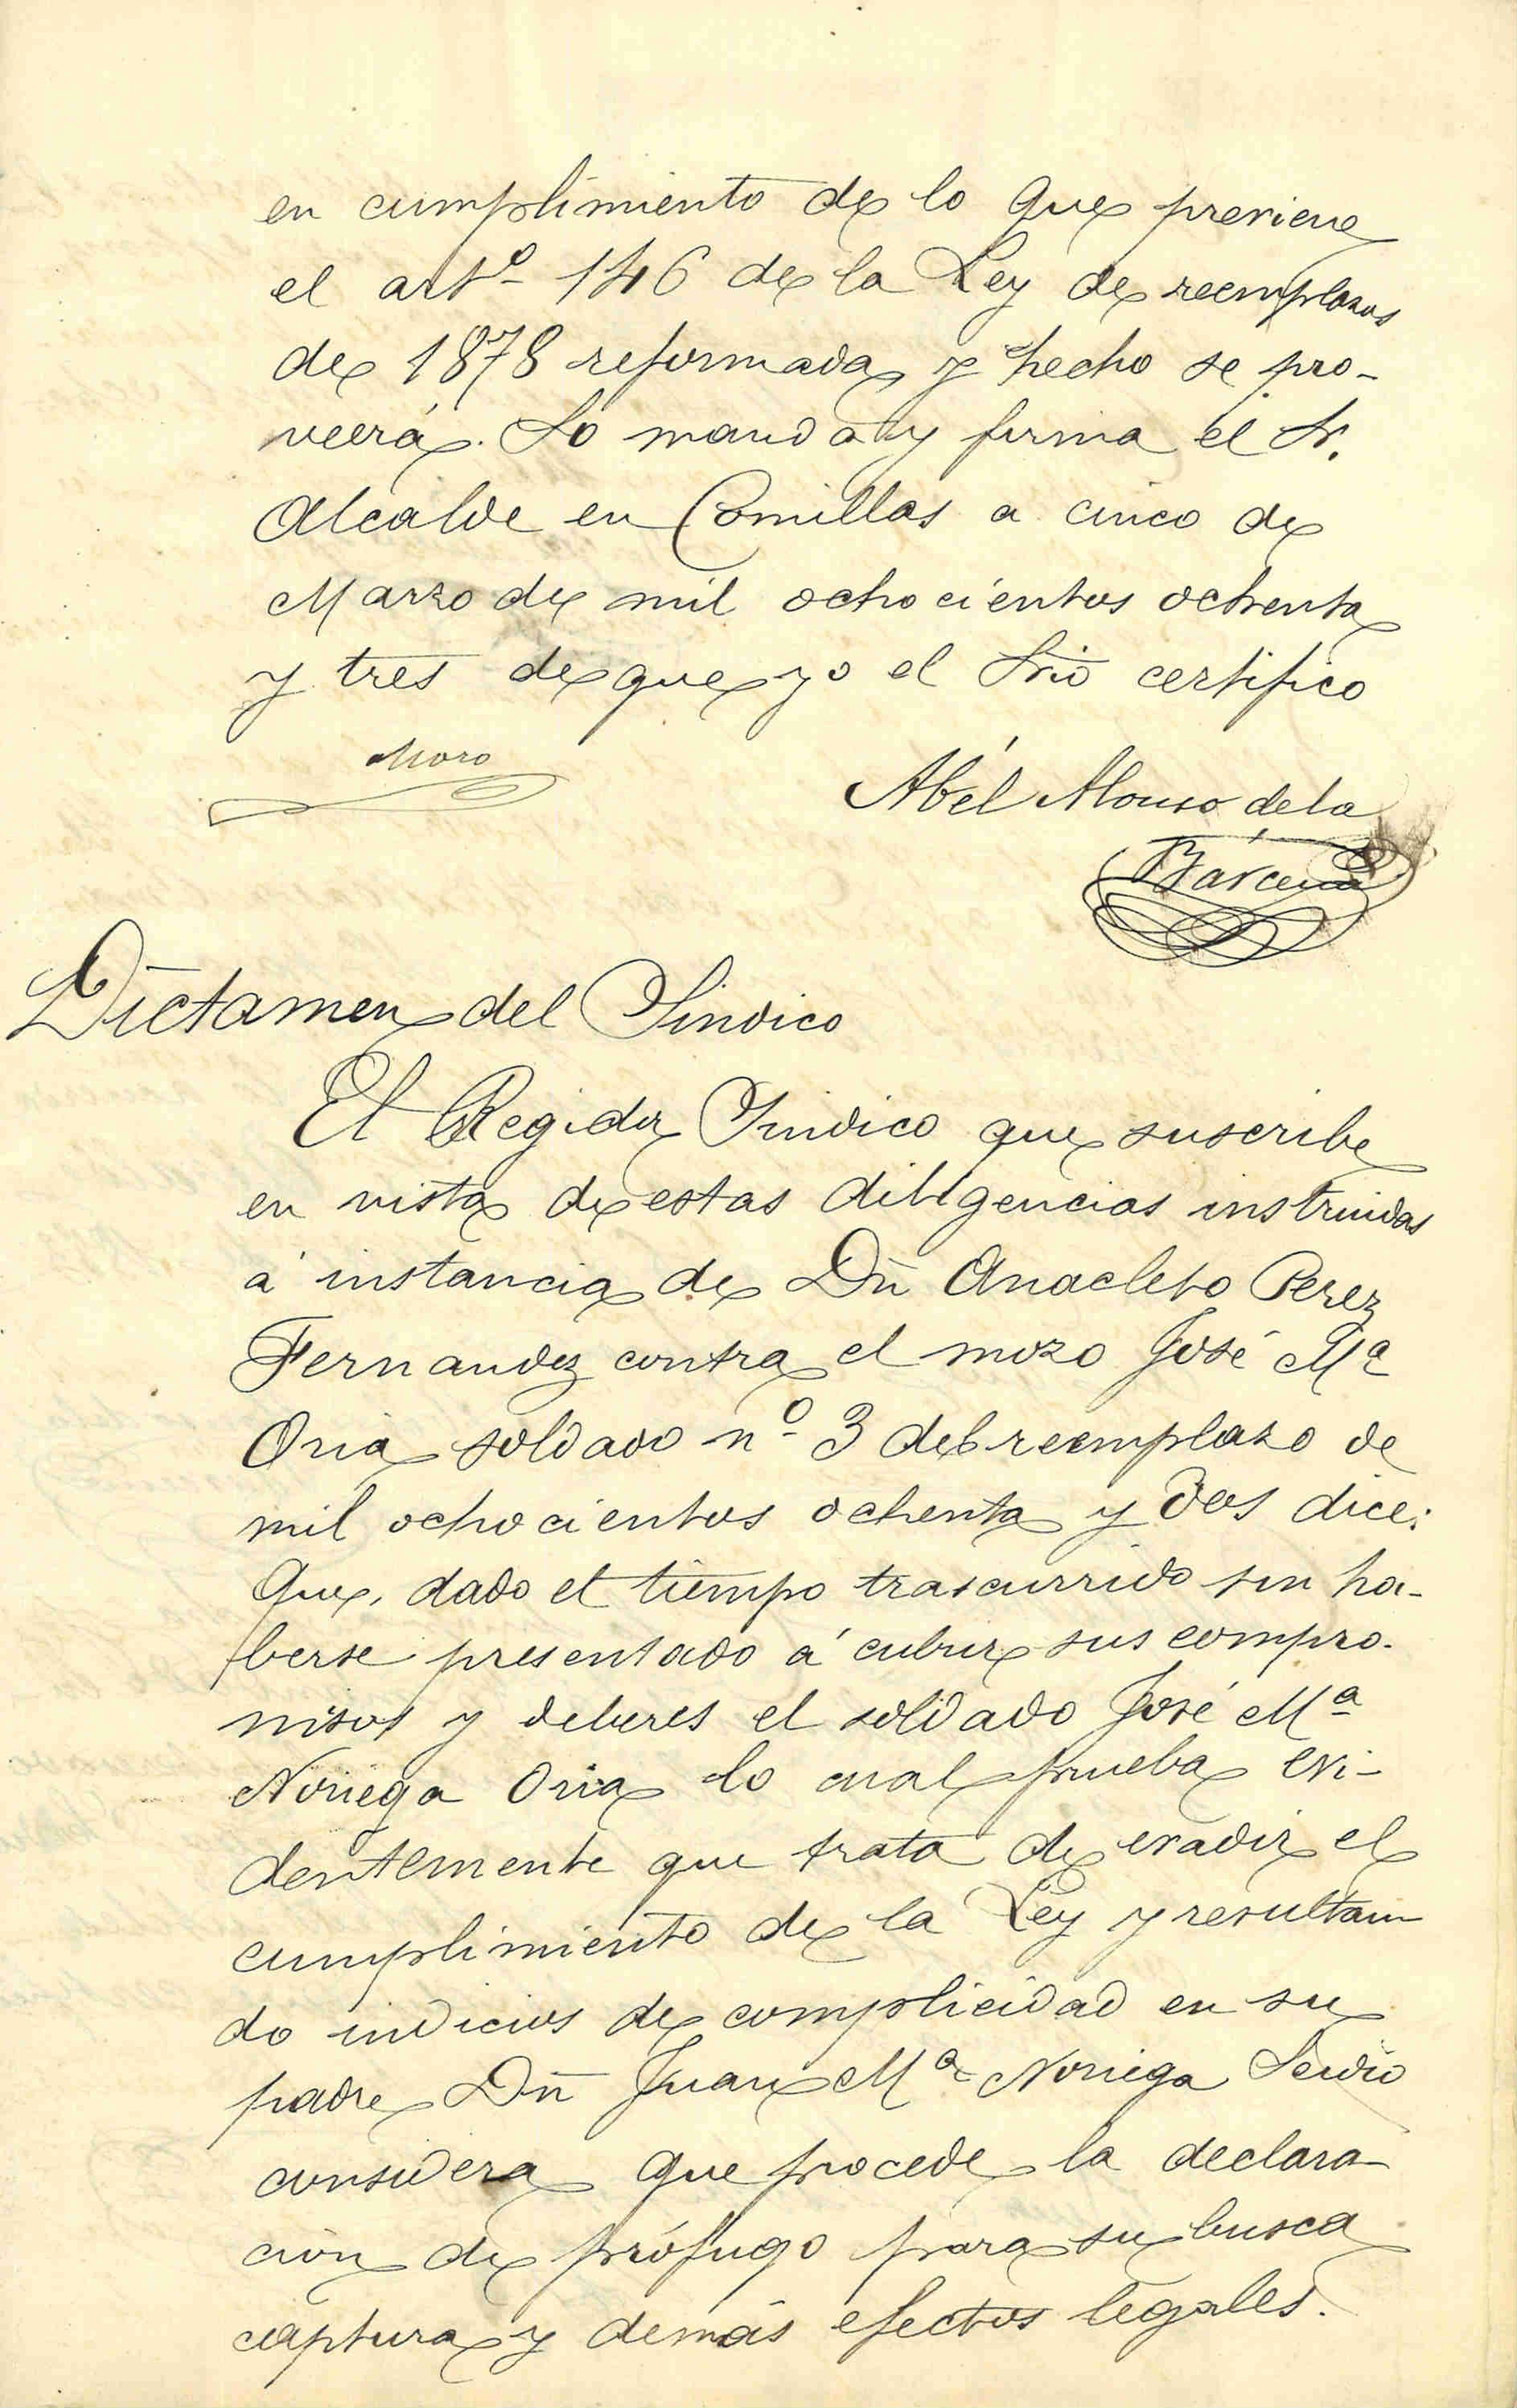 en cumplimiento de lo que previene
el artº 146 de la Ley de reemplazos
de 1878 reformada y hecho se pro-
veerá. Lo manda y firma el Sr.
Alcalde en Comillas a cinco de
Marzo de mil ochocientos ochenta
y tres de que yo el Srio certifico
Moro
Abél Alonso de la
Bárcena
Dictamen del Sindico
El Regidor Sindico que suscribe
en vista de estas diligencias instruidas
á instancia de Dn̄ Anacleto Perez
Fernandez contra el mozo José Mª
Oria soldado nº 3 del reemplazo de
mil ochocientos ochenta y dos dice:
Que, dado el tiempo trascurrido sin ha-
berse presentado á cubrir sus compro-
misos y deberes el soldado José Mª
Noriega Oria lo cual prueba evi-
dentemente que trata de evadir el
cumplimiento de la Ley y resultan-
do indicios de complicidad en su
padre Dn̄ Juan Mª Noriega
considera que procede la declara-
ción de prófugo para su busca
captura y demás efectos legales.